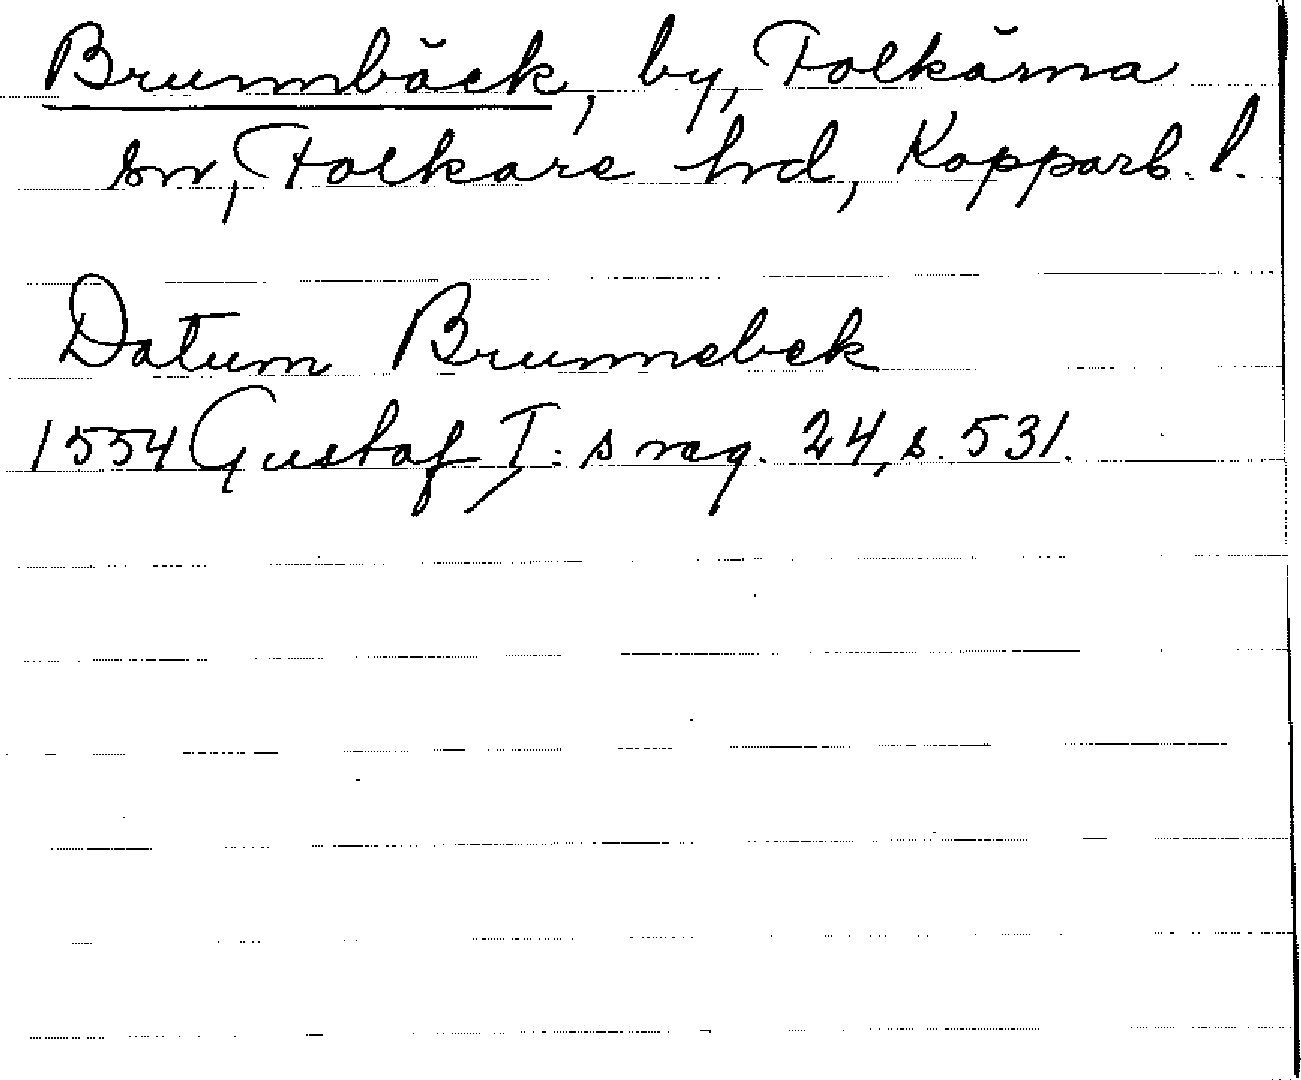 Brunnbäck, by, Folkärna
sn, Folkare hrd, Kopparb. l.
Datum Brunnebek
1554 Gustaf I: s reg. 24, s. 531.